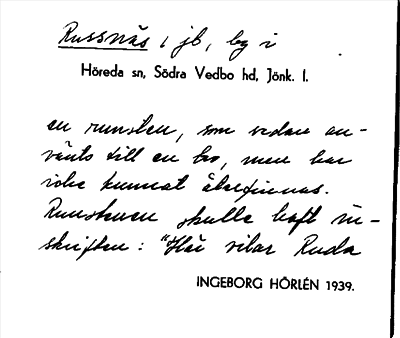 Russnäs i jb, beg i
Höreda sn, Södra Vedbo hd, Jönk. l.
en runsten, som sedan an-
vänts till en bro, men har
icke kunnat återfinnas.
Runstenen skulle haft in-
skriften: "Här vilar Ruda
INGEBORG HÖRLÉN 1939.